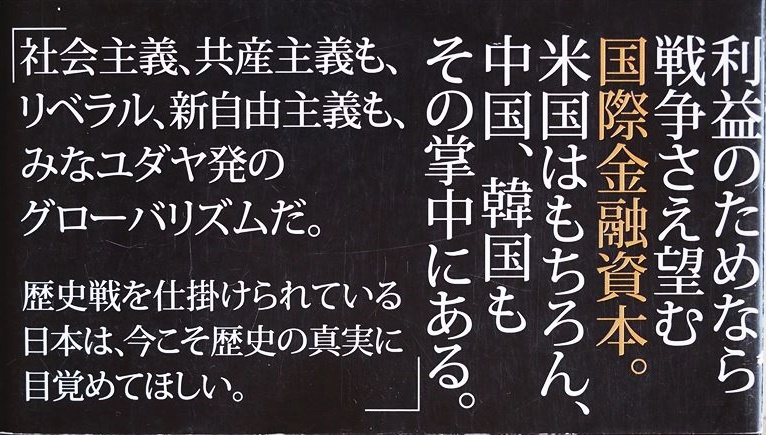 利益のためなら
戦争さえ望む
国際金融資本。
米国はもちろん、
中国、韓国も
その掌中にある。
「社会主義、共産主義も、
リベラル、新自由主義も、
みなユダヤ発の
グローバリズムだ。
歴史戦を仕掛けられている
日本は、今こそ歴史の真実に
目覚めてほしい。」